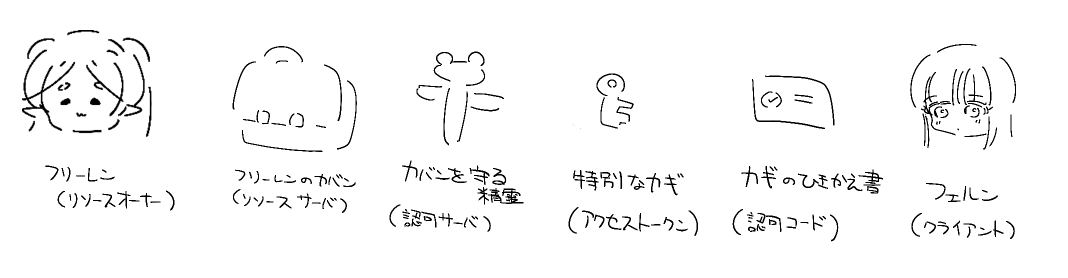 フリーレン
(リソースオーナー)
フリーレンのカバン
(リソースサーバ)
カバンを守る
精霊
(認可サーバ)
特別なカギ
(アクセストークン)
カギのひきかえ書
(認可コード)
フェルン
(クライアント)